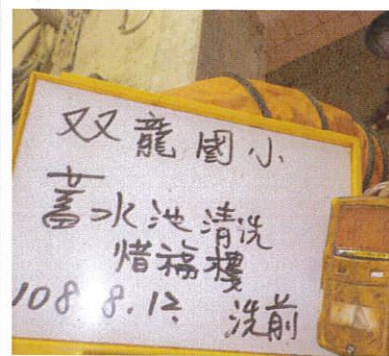 双龍國小
蓄水池清洗
惜福樓
108 8.12. 洗前